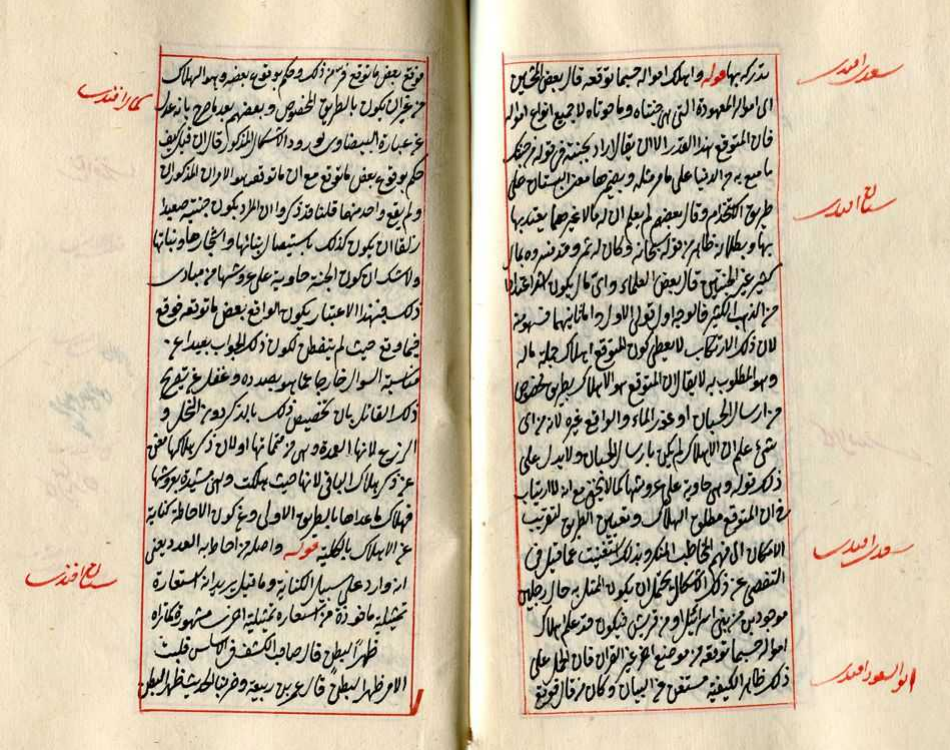 سعدى افندى
يدركه بها قوله واهلك امواله حسبما توقعه قال بعض المحشين
اى امواله المعهودة التى هى جنتاه وما حوتاه لا جميع انواع امواله
فان المتوقع بهذا القدر الا ان يقال اراد بجنته فى قوله
ما متع به فى الدنيا على ما مر مثله ويضم معنى البستان على
طريق الاستخدام وقال بعضهم لم يعلم ان له مالا غيرهما يعتد بها
بها وبطلانه ظاهر من قوله سبحانه وكان له ثمر وقد فسروه بمال
كثير غير الجنتين قال بعض العلماء واى مال يكون اكثر
من الذهب الكثير فالوجه اول قولى الاول واما ثانيهما فسهو منه
لان ذلك الارتكاب لا يعطى كون المتوقع اهلاك جملة ماله
وهو المطلوب به لا يقال ان المتوقع هو الاهلاك بطريق مخصوص
من ارسال الحسبان او غور الماء والواقع غيره لانه من اى
شئ علم ان الاهلاك لم يكن بارسال الحسبان ولا يدل على
ذلك قوله وهى خاوية على عروشها كما لا يخفى مع انه لا ارتياب
فى ان المتوقع مطلق الهلاك وتعيين الطريق لتقريب
الامكان الى فهم المخاطب المنكر وبذلك استغنيت عما قيل فى
التفصى عن ذلك الاشكال يحتمل ان يكون الممثل به حال رجلين
موجودين من بنى اسرائيل او من قريش فيكون قد علم اهلاك
امواله حسبما توقعه من موضع اخر غير القران فان الحال على
ذلك ظاهر الكيفية مستغن عن البيان وكان من قال فوقع
سعدى افندى
ابو السعود افندى
فوقع بعض ما توقع فر من ذلك وحكم بوقوع بعضه وهو الهلاك
من غير ان يكون بالطريق المخصوص وبعضهم بعد ما صرح بانه عدل
عن عبارة البيضاوى لورود الاشكال المذكور قال ان قيل كيف
حكم بوقوع بعض ما توقع مع ان ما توقعه هو الامران المذكوران
ولم يقع واحد منهما قلنا قد ذكروا ان المراد بكون جنته صعيدا
زلقا ان يكون كذلك باستيصال بنائها واشجارها ونباتها
ولا شك ان كون الجنة خاوية على عروشها من مبادى
ذلك فبهذا الاعتبار يكون الواقع بعض ما توقعه فوقع
فيما وقع حيث لم يتفطن لكون ذلك الجواب بعيدا عن
مناسبة السؤال خارجا عما هو بصدده وغفل عن تصريح
ذلك القائل بان تخصيص ذلك بالذكر دون النخل و
الزرع لانها العمدة وهى من متمماتها او لان ذكر هلاكها مغن
عن ذكر هلاك الباقى لانها حيث هلكت وهى مشيدة بعروشها
فهلاك ما عداها بالطريق الاولى وعن كون الاحاطة كناية
عن الاهلاك بالكلية قوله واصله من احاط به العدو يعنى
انه وارد على سبيل الكناية وما قيل يريد انه استعارة
تمثيلية ماخوذة من استعارة تمثيلية اخرى مشهورة
ظهرا لبطن قال صاحب الكشف فى الاساس قلبت
الامر ظهرا لبطن قال عمر بن ربيعة وضربنا الحديث ظهرا لبطن